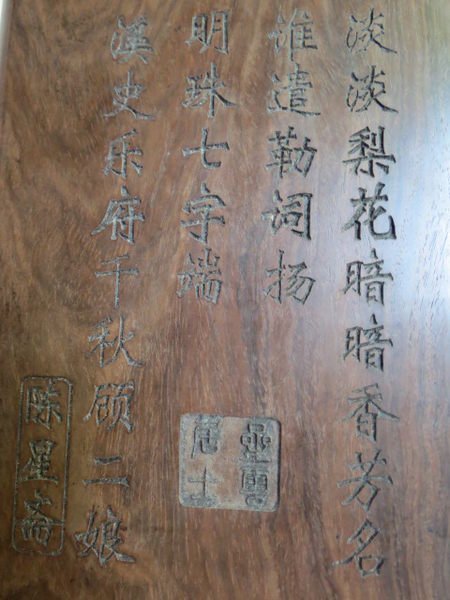 淡淡梨花暗暗香芳名
谁遣勒词扬
明珠七字端
溪史乐府千秋顾二娘
居士
陈星斋